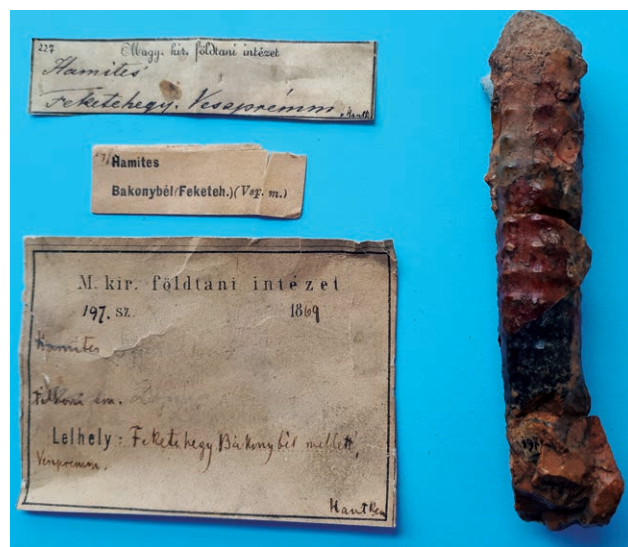 227
Magy. kir. földtani intézet
Hamites
Feketehegy. Veszprémm.
v. Hantk
Hamites
Bakonybél(Feketeh.)(Vep. m.)
M. kir. földtani intézet
197. sz. 1869
Hamites
Titkoni em.
Lelhely: Feketehegy Bakonybél mellett,
Veszpremm.
Hantken